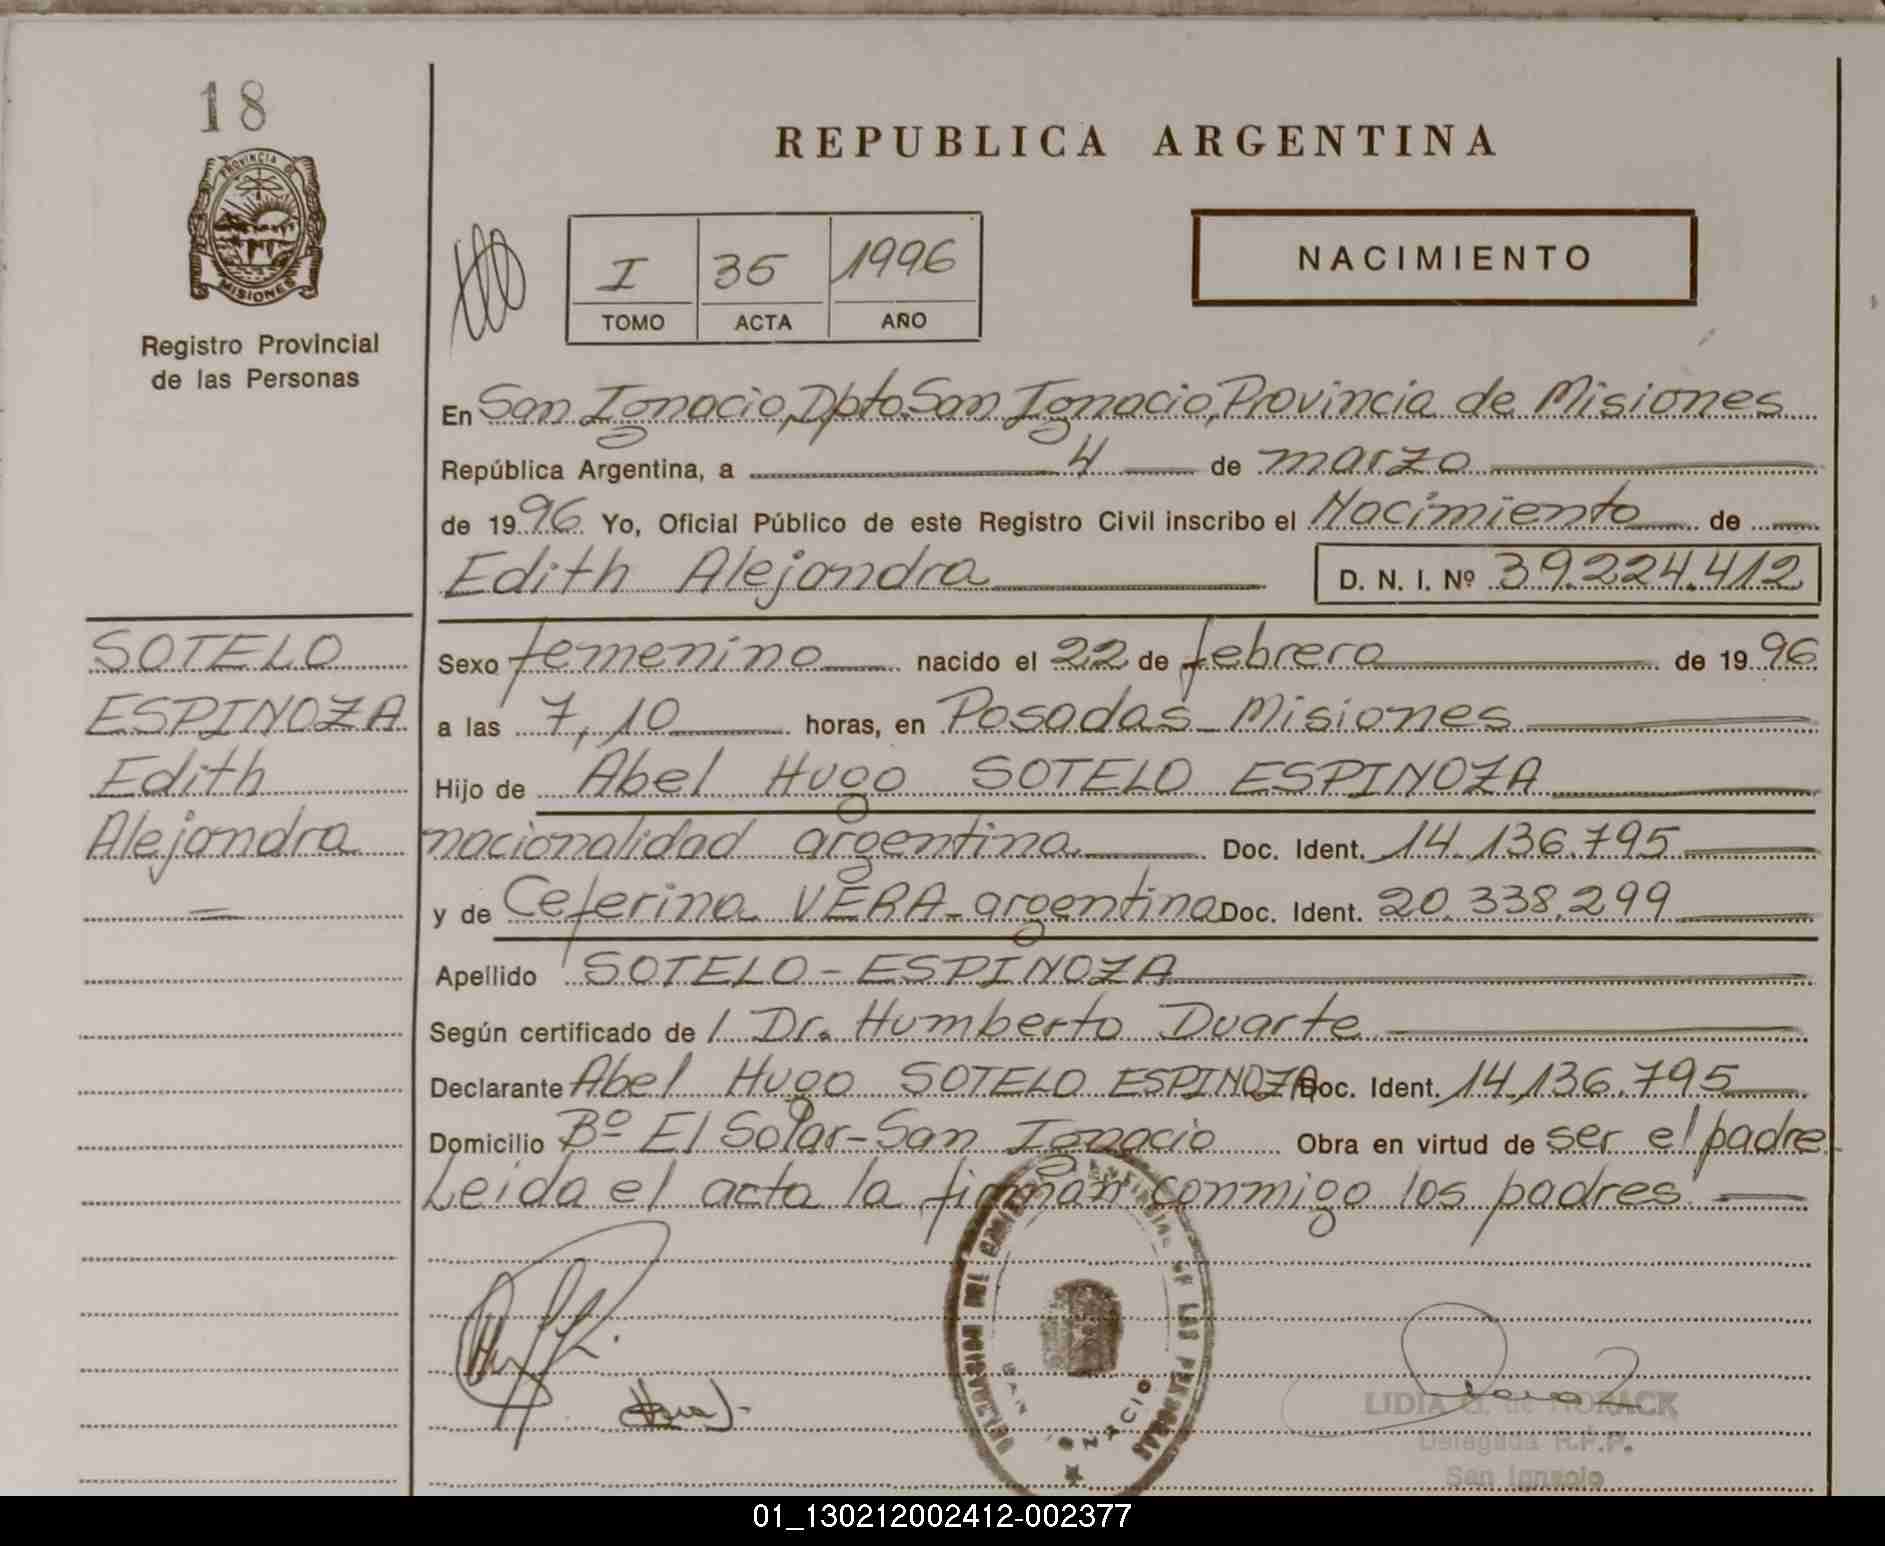 18
PROVINCIA DE
MISIONES
Registro Provincial
de las Personas
REPUBLICA ARGENTINA
I 35 1996
TOMO ACTA AÑO
NACIMIENTO
En San Ignacio, Dpto. San Ignacio, Provincia de Misiones
República Argentina, a 4 de marzo
de 1996 Yo, Oficial Público de este Registro Civil inscribo el Nacimiento de
Edith Alejandra D. N. I. Nº 39.224.412
SOTELO
ESPINOZA
Edith
Alejandra
Sexo femenino nacido el 22 de febrero de 1996
a las 7,10 horas, en Posadas - Misiones
Hijo de Abel Hugo SOTELO ESPINOZA
nacionalidad argentina Doc. Ident. 14.136.795
y de Ceferina VERA - argentina Doc. Ident. 20.338.299
Apellido SOTELO - ESPINOZA
Según certificado de / Dr. Humberto Duarte
Declarante Abel Hugo SOTELO ESPINOZA Doc. Ident. 14.136.795
Domicilio Bº El Solar - San Ignacio Obra en virtud de ser el padre
Leida el acta la firman conmigo los padres
DE LAS PERSONAS
SAN IGNACIO
LIDIA de HORACK
Delegada R.P.P.
San Ignacio
01_130212002412-002377